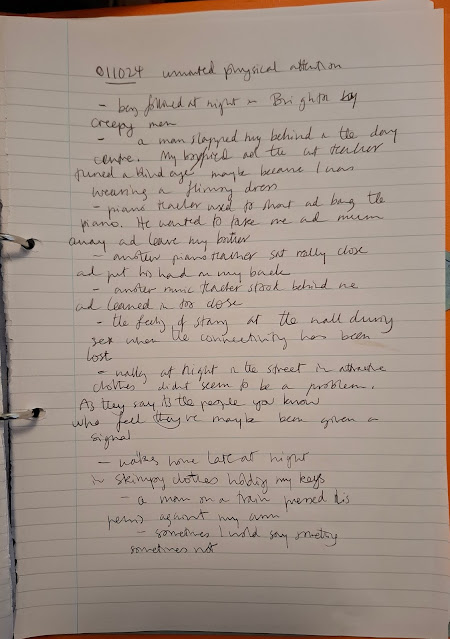 011024 unwanted physical attention
- being followed at night in Brighton by
creepy men
- a man slapped my behind in the day
centre. My boyfriend and the art teacher
turned a blind eye maybe because I was
wearing a flimsy dress
- piano teacher used to shout and bang the
piano. He wanted to take me and mum
away and leave my brother
- another piano teacher sat really close
and put his hand on my back
- another music teacher stood behind me
and leaned in too close
- the feeling of staring at the wall during
sex when the connectivity has been
lost
- walking at night in the street in attractive
clothes didnt seem to be a problem.
As they say its the people you know
who feel they've maybe been given a
signal
- walks home late at night
in skimpy clothes holding my keys
- a man on a train pressed his
penis against my arm
- sometimes I would say something
sometimes not